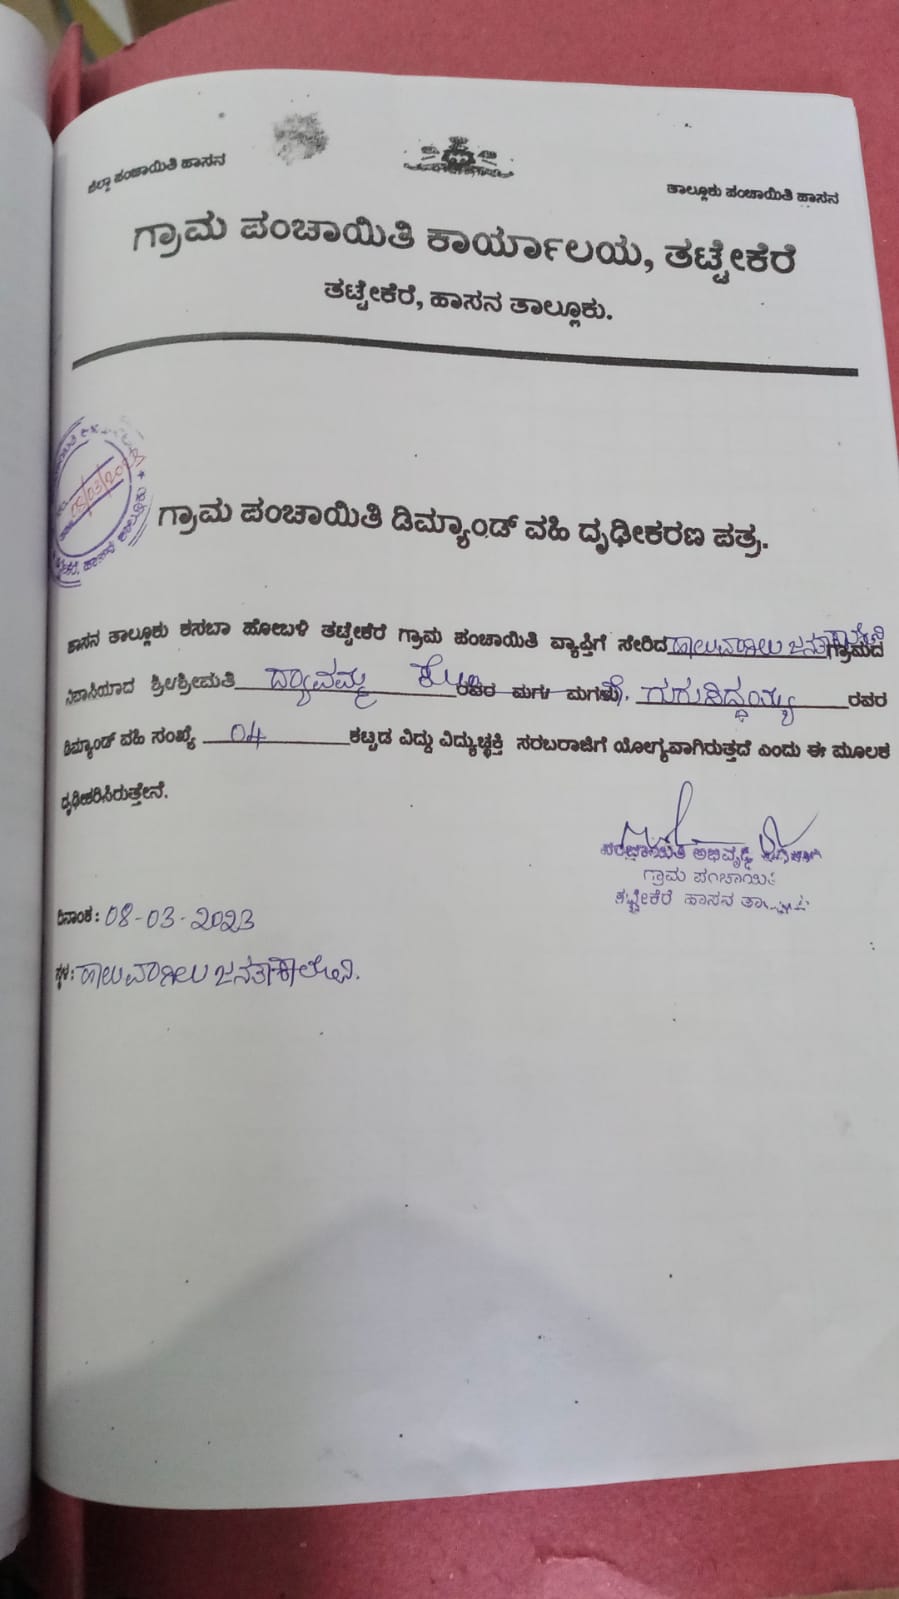 ಜಿಲ್ಲಾ ಪಂಚಾಯಿತಿ ಹಾಸನ
ತಾಲ್ಲೂಕು ಪಂಚಾಯಿತಿ ಹಾಸನ
ಗ್ರಾಮ ಪಂಚಾಯಿತಿ ಕಾರ್ಯಾಲಯ, ತಟ್ಟೇಕೆರೆ
ತಟ್ಟೇಕೆರೆ, ಹಾಸನ ತಾಲ್ಲೂಕು.
08/03/2023
ಗ್ರಾಮ ಪಂಚಾಯಿತಿ ಡಿಮ್ಯಾಂಡ್ ವಹಿ ದೃಢೀಕರಣ ಪತ್ರ.
ಹಾಸನ ತಾಲ್ಲೂಕು ಕಸಬಾ ಹೋಬಳಿ ತಟ್ಟೇಕೆರೆ ಗ್ರಾಮ ಪಂಚಾಯಿತಿ ವ್ಯಾಪ್ತಿಗೆ ಸೇರಿದ ಹಾಲುವಾಗಿಲು ಜನತಾ ಕಾಲೋನಿ ಗ್ರಾಮದ
ನಿವಾಸಿಯಾದ ಶ್ರೀ/ಶ್ರೀಮತಿ ದ್ಯಾವಮ್ಮ ಕೋಂ ರವರ ಮಗ/ ಮಗಳು. ಗುರುಸಿದ್ಧಯ್ಯ ರವರ
ಡಿಮ್ಯಾಂಡ್ ವಹಿ ಸಂಖ್ಯೆ 04 ಕಟ್ಟಡ ವಿದ್ದು ವಿದ್ಯುಚ್ಛಕ್ತಿ ಸರಬರಾಜಿಗೆ ಯೋಗ್ಯವಾಗಿರುತ್ತದೆ ಎಂದು ಈ ಮೂಲಕ
ದೃಢೀಕರಿಸಿರುತ್ತೇನೆ.
ಪಂಚಾಯಿತಿ ಅಭಿವೃದ್ಧಿ
ಗ್ರಾಮ ಪಂಚಾಯಿತಿ
ತಟ್ಟೇಕೆರೆ ಹಾಸನ
ದಿನಾಂಕ: 08-03-2023
ಸ್ಥಳ: ಹಾಲುವಾಗಿಲು ಜನತಾಕಾಲೋನಿ.